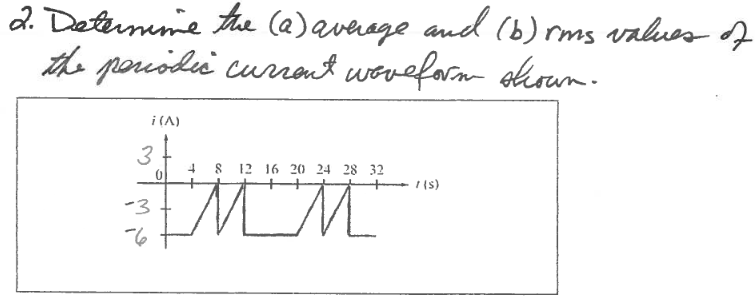 2. Determine the (a) average and (b) rms values of
the periodic current waveform shown.
i (A)
3
0 4 8 12 16 20 24 28 32
t (s)
-3
-6